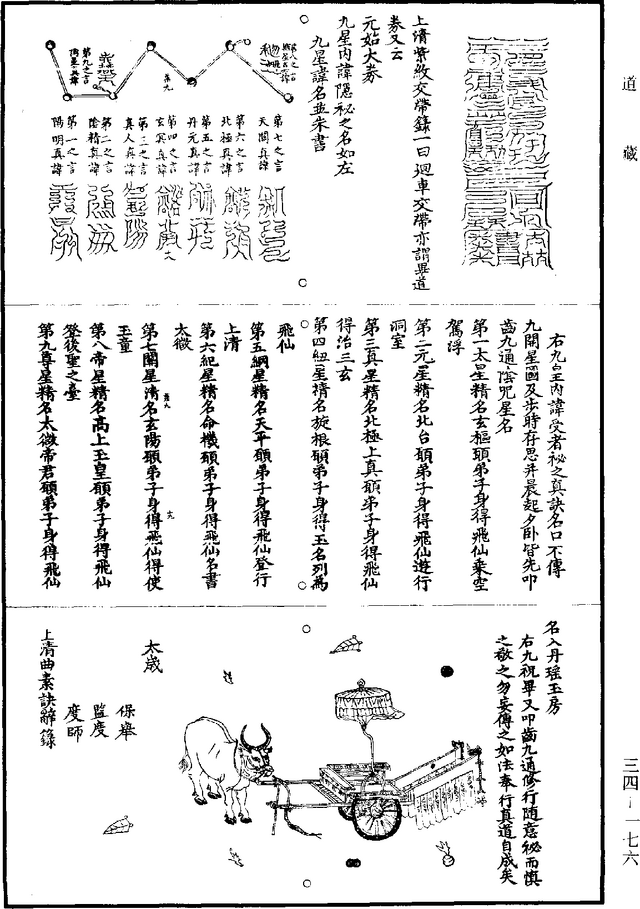 道藏
上清紫紋交帶籙一曰迴車交帶亦謂畢道
券又云
元始大券
九星內諱隱祕之名如左
九星諱名並朱書
第七之言
天關真諱
第六之言
北極真諱
第五之言
丹元真諱
第四之言
玄冥真諱
第三之言
真人真諱
第二之言
陰精真諱
第一之言
陽明真諱
右九皇內諱受者祕之真訣名口不傳
九開星圖及步時存思并晨起夕臥皆先叩
齒九通陰咒星名
第一太星精名玄樞願弟子身得飛仙乘空
駕浮
第二元星精名北台願弟子身得飛仙遊行
洞室
第三真星精名北極上真願弟子身得飛仙
得治三玄
第四紐星精名旋根願弟子身得玉名列為
飛仙
第五綱星精名天平願弟子身得飛仙登行
上清
第六紀星精名命機願弟子身得飛仙名書
太微
第七關星精名玄陽願弟子身得飛仙得使
玉童
第八帝星精名高上玉皇願弟子身得飛仙
登後聖之臺
第九尊星精名太微帝君願弟子身得飛仙
名入丹瑤玉房
右九祝畢又叩齒九通修行隨意祕而慎
之敬之勿妄傳之如法奉行真道自成矣
太歲
保舉
監度
度師
上清曲素訣辭籙
三四-一七六